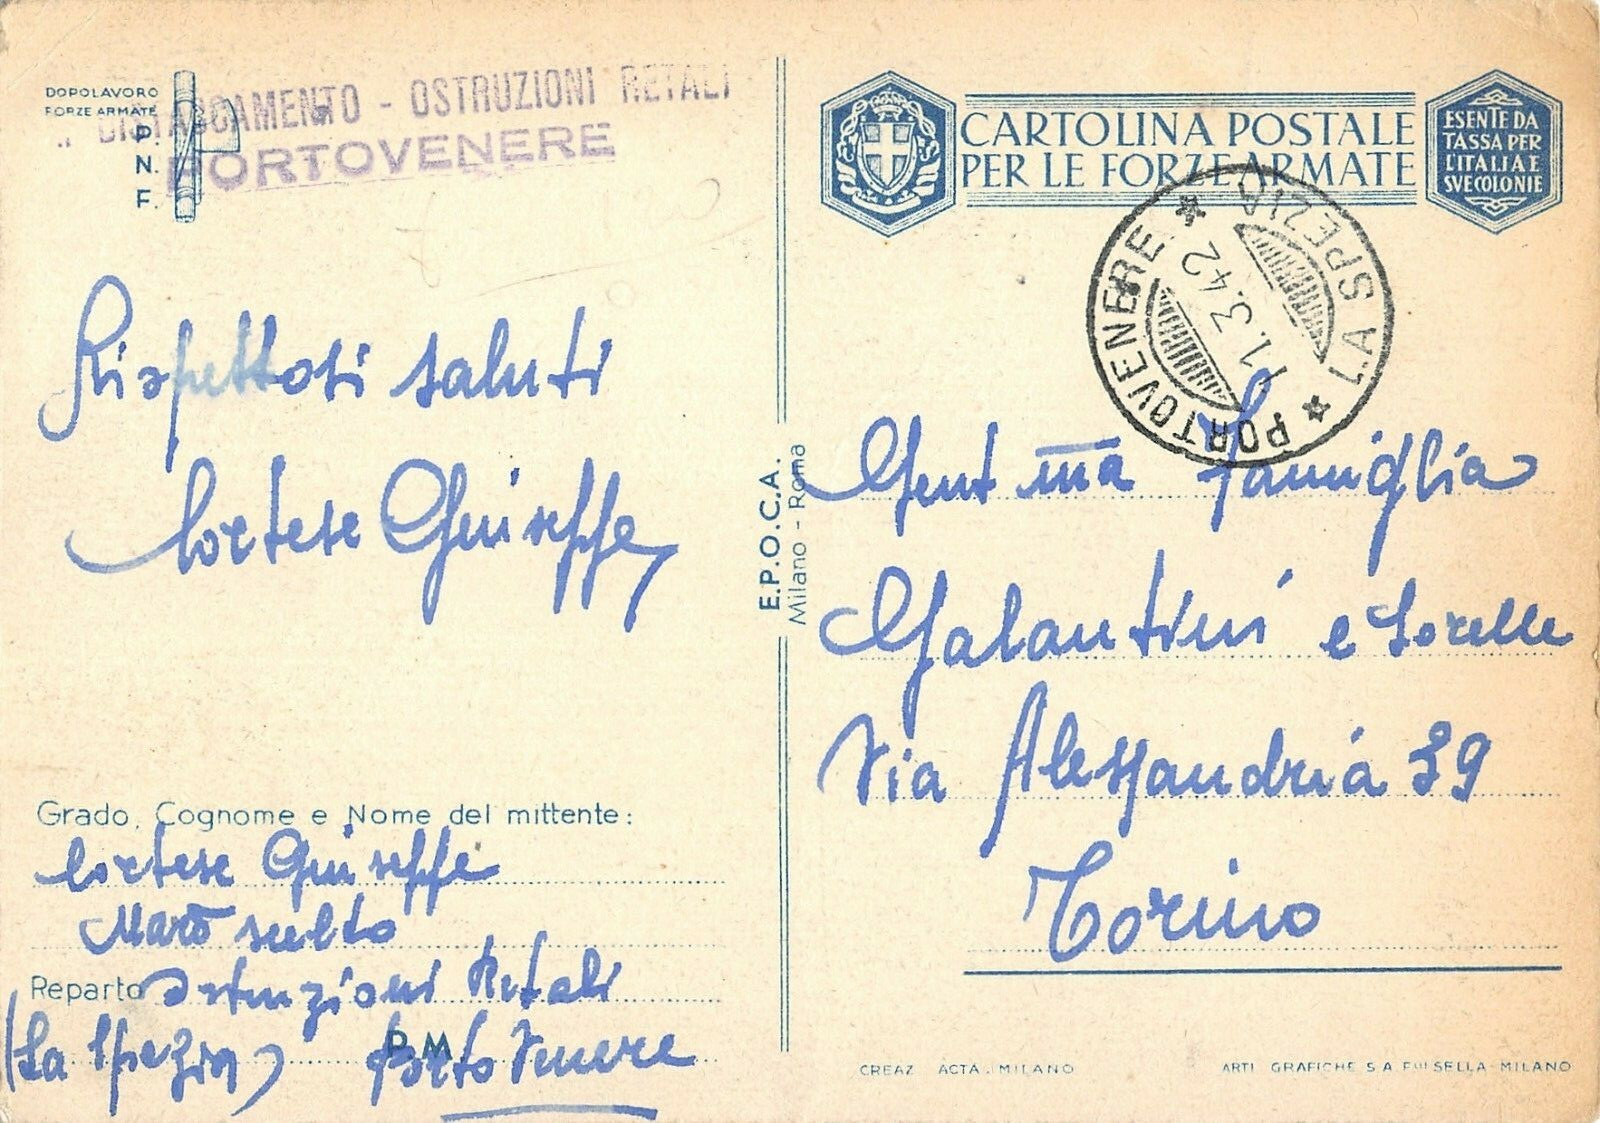 DOPOLAVORO
FORZE ARMATE
P.
N.
F.
DISTACCAMENTO - OSTRUZIONI RETALI
PORTOVENERE
CARTOLINA POSTALE
PER LE FORZE ARMATE
ESENTE DA
TASSA PER
L'ITALIA E
SUE COLONIE
PORTOVENERE * LA SPEZIA *
11.3.42
Rispettosi saluti
Cortese Giuseppe
E.P.O.C.A.
Milano - Roma
Gent ma Famiglia
Galantini e Sorelle
Via Alessandria 39
Torino
Grado, Cognome e Nome del mittente:
Cortese Giuseppe
Marò scelto
Reparto Ostruzioni Retali
P. M.
(La Spezia) Porto Venere
CREAZ ACTA. MILANO
ARTI GRAFICHE S A MILANO